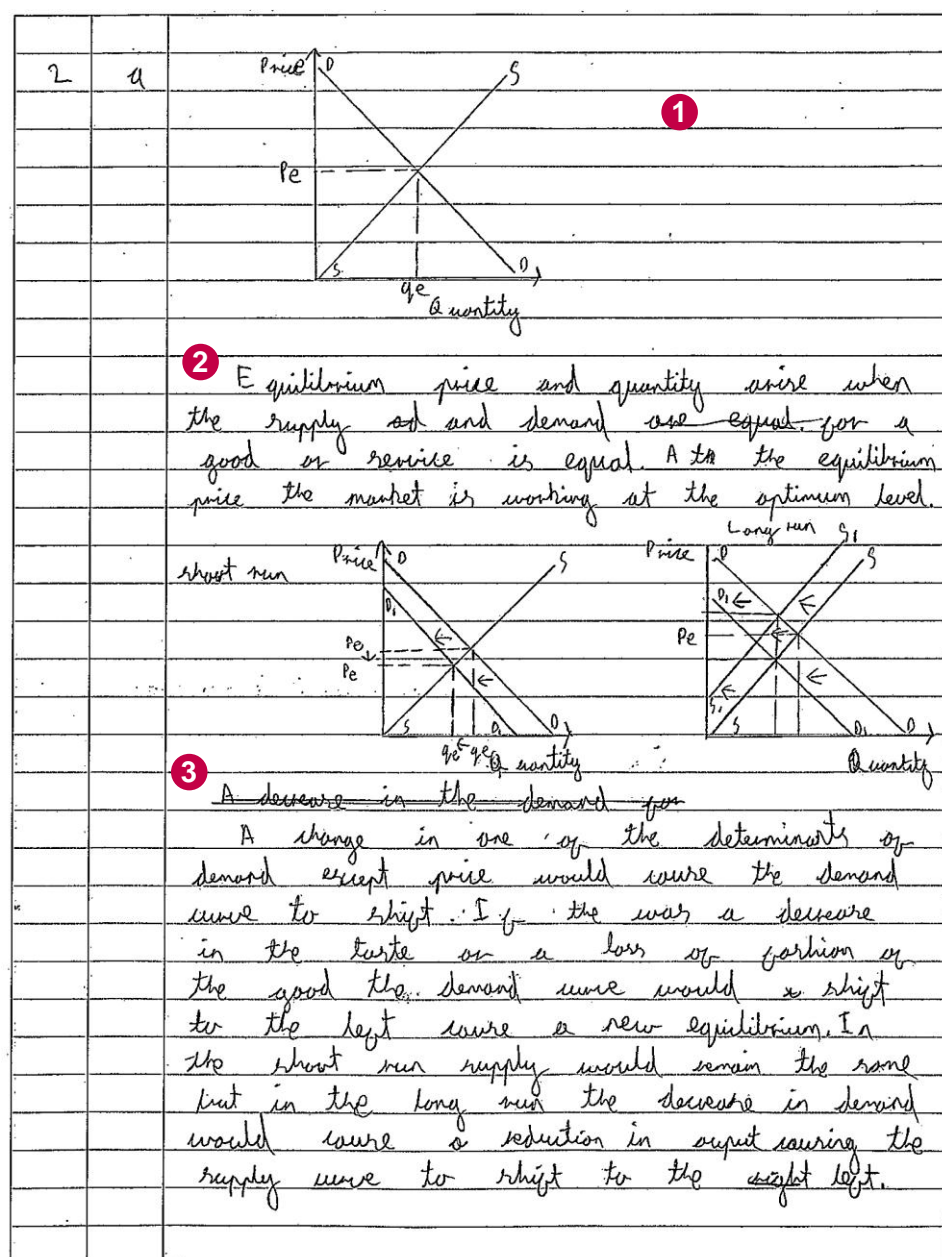 2 a
Price D S
1
Pe
S D
qe
Quantity
2
Equilibrium price and quantity arise when
the supply ad and demand are equal. for a
good or service is equal. A th the equilibrium
price the market is working at the optimum level.
Long run S1
Price D S Price D S
short run
D1 D1
Pe Pe
Pe
S1
S D1 D S D1 D
qe qe Quantity Quantity
3
A decreare in the demand for
A change in one of the determinants of
demand except price would cause the demand
curve to shift. If the was a decreare
in the taste or a loss of fashion of
the good the demand curve would x shift
to the left cause a new equidibrium. In
the shoot run supply would remain the same
but in the long run the decreare in demand
would cause a reduction in ouput causing the
supply curve to shift to the right left.